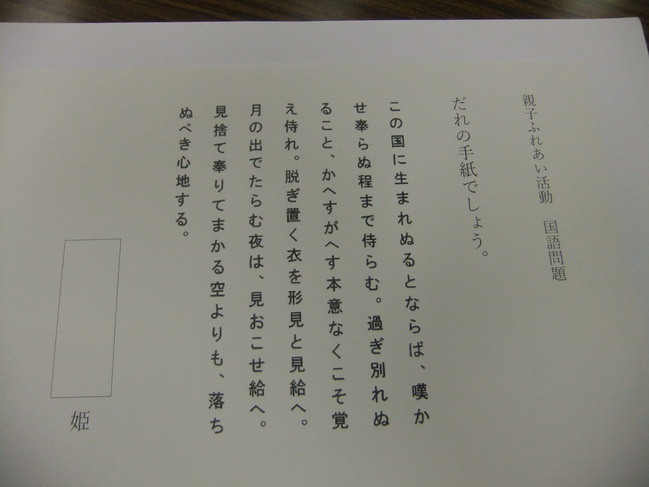 親子ふれあい活動　国語問題
だれの手紙でしょう。
この国に生まれぬるとならば、嘆か
せ奉らぬ程まで侍らむ。過ぎ別れぬ
ること、かへすがへす本意なくこそ覚
え侍れ。脱ぎ置く衣を形見と見給へ。
月の出でたらむ夜は、見おこせ給へ。
見捨て奉りてまかる空よりも、落ち
ぬべき心地する。
姫